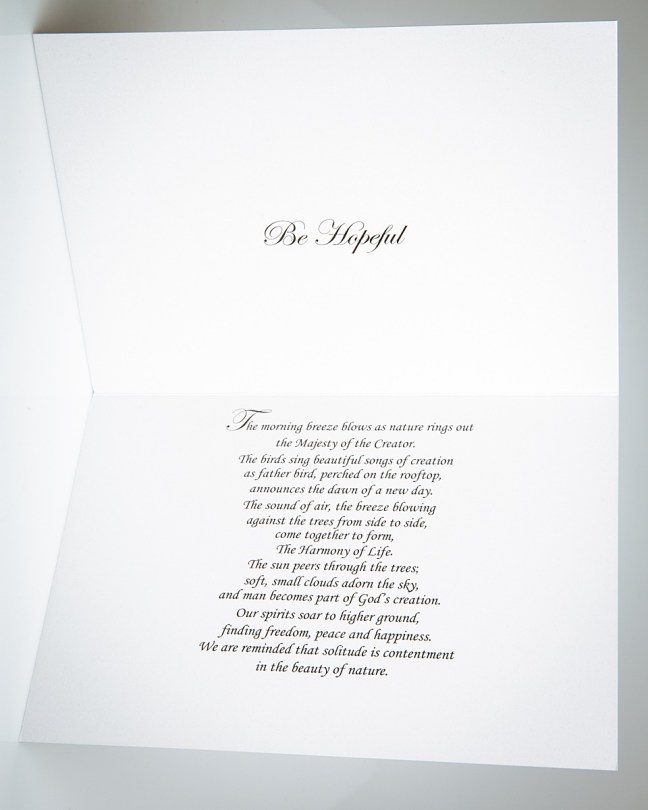 Be Hopeful
The morning breeze blows as nature rings out
the Majesty of the Creator.
The birds sing beautiful songs of creation
as father bird, perched on the rooftop,
announces the dawn of a new day.
The sound of air, the breeze blowing
against the trees from side to side,
come together to form,
The Harmony of Life.
The sun peers through the trees;
soft, small clouds adorn the sky,
and man becomes part of God's creation.
Our spirits soar to higher ground,
finding freedom, peace and happiness.
We are reminded that solitude is contentment
in the beauty of nature.